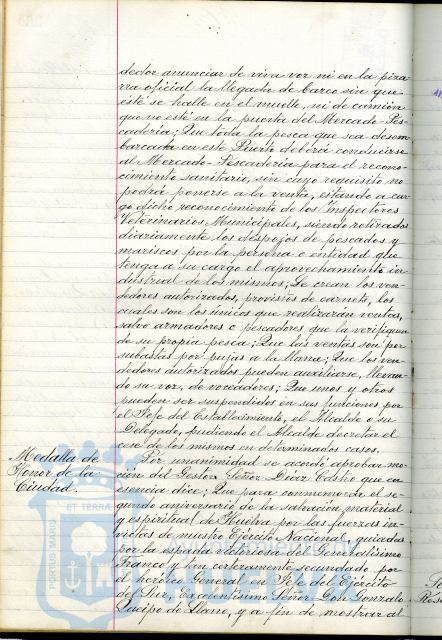 dedor anunciar de viva voz ni en la piza
rra oficial la llegada de barco sin que
éste se halle en el muelle, ni de camión
que no esté en la puerta del Mercado-Pes-
cadería; Que toda la pesca que sea desem
barcada en este Puerto deberá conducirse
al Mercado-Pescadería para el recono-
cimiento sanitario, sin cuyo requisito no
podrá ponerse a la venta, estando a car
go dicho reconocimiento de los Inspectores
Veterinarios Municipales, siendo retirados
diariamente los despojos de pescados y
mariscos por la persona o entidad que
tenga a su cargo el aprovechamiento in-
dustrial de los mismos; Se crean los ven-
dedores autorizados, provistos de carnets, los
cuales son los únicos que realizarán ventas,
salvo armadores o pescadores que la verifiquen
de su propia pesca; Que las ventas son por
subastas por pujas a la llana; Que los ven-
dedores autorizados pueden auxiliarse, llevan-
do su voz, de voceadores; Que unos y otros
pueden ser suspendidos en sus funciones por
el Jefe del Establecimiento, el Alcalde o su
Delegado, pudiendo el Alcalde decretar el
cese de los mismos en determinados casos.
Medalla de
Honor de la
Ciudad.
Por unanimidad se acordó aprobar mo-
ción del Gestor Señor Díaz Castro que en
esencia dice; Que para conmemorar el se-
gundo aniversario de la salvación material
y espiritual de Huelva por las fuerzas in-
victas de nuestro Ejército Nacional, guiadas
por la espada victoriosa del Generalísimo
Franco y tan certeramente secundado por
el heróico General en Jefe del Ejército
del Sur, Excelentísimo Señor Don Gonzalo
Queipo de Llano, y a fin de mostrar al
PORTUS MARIS
ET TERRÆ